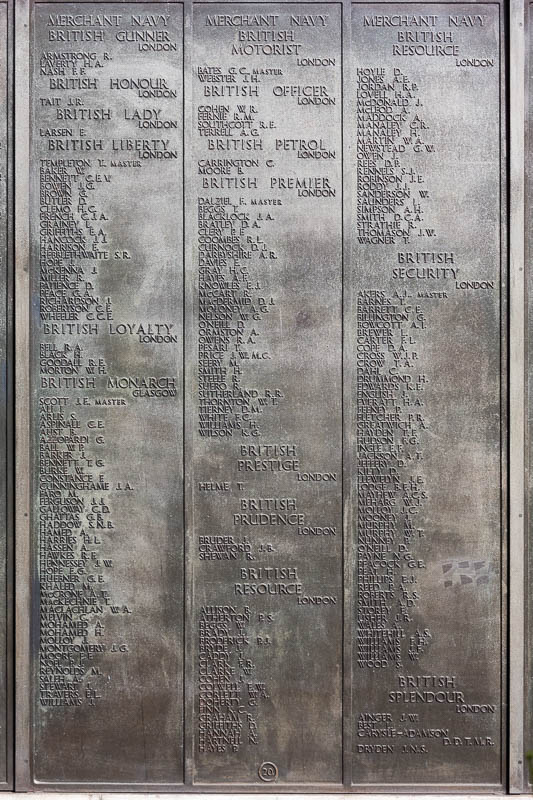 MERCHANT NAVY
BRITISH GUNNER
LONDON
ARMSTRONG R.
LAVERTY H.A.
NASH F.F.
BRITISH HONOUR
LONDON
TAIT J.R.
BRITISH LADY
LONDON
LARSEN E.
BRITISH LIBERTY
LONDON
TEMPLETON T. MASTER
BAKER W.
BENNETT C.E.V.
BOWEN J.G.
BROWN G.
BUTLER D.
CLEMO H.C.
FRENCH C.J.A.
GRAINEY L.
GRIFFITHS E.A.
HANCOCK J.J.
HARRISON E.
HEBBLETHWAITE S.R.
HOPE J.
McKENNA J.
MILLER R.
PATIENCE D.
PEACH G.A.
RICHARDSON J.
ROBERTSON C.E.
WHEELER C.C.E.
BRITISH LOYALTY
LONDON
BELL R.A.
BLACK H.
GOODALL R.E.
MORTON W.H.
BRITISH MONARCH
GLASGOW
SCOTT J.F. MASTER
ALI I.
ARLIS S.
ASPINALL C.E.
AUST B.
AZZOPARDI G.
BALL W.P.
BARKER J.
BENNETT T.G.
BURKE W.
CONSTANCE F.
CUNNINGHAME J.A.
FARO M.
FERGUSON J.J.
GALLOWAY C.D.
GHATTAS G.B.
HADDOW S.N.B.
HAMED A.
HARRIES H.L.
HASSEN A.
HAWKES R.F.
HENNESSEY J.W.
HOPE E.G.
HUEBNER G.E.
KHALED M.
McCRONE A.T.
MacKECHNIE T.
MACLACHLAN W.A.
MELVIN G.
MOHAMED A.
MOHAMED H.
MOLLOY J.
MONTGOMERY J.G.
MOORE P.F.
NOEL P.J.
REYNOLDS M.
SALEH A.
STEWART J.
TRAVERS F.L.
WILLIAMS J.
MERCHANT NAVY
BRITISH
MOTORIST
LONDON
BATES G.C. MASTER
WEBSTER J.H.
BRITISH OFFICER
LONDON
COHEN W.R.
FERNIE R.M.
SOUTHCOTT R.E.
TERRELL A.G.
BRITISH PETROL
LONDON
CARRINGTON C.
MOORE B.
BRITISH PREMIER
LONDON
DALZIEL F. MASTER
BEGGS T.
BLACKLOCK J.A.
BRATLEY D.A.
CLEY P.F.
COOMBES R.L.
CURNOCK D.J.
DARBYSHIRE A.R.
DAVIES E.
GRAY H.C.
HAYES A.E.
KNOWLES E.J.
McCART R.
MacDERMID D.J.
MOLONEY A.G.
NELSON W.G.
O'NEILL D.
ORMSTON A.
OWENS R.A.
PESARI T.
PRICE J.W.M.G.
SEERY M.
SMITH H.
STEELE R.
SUERO R.
SUTHERLAND R.R.
THORNTON W.T.
TIERNEY D.M.
WHITE F.C.
WILLIAMS H.
WILSON K.G.
BRITISH
PRESTIGE
LONDON
HELME T.
BRITISH
PRUDENCE
LONDON
BRUDER J.
CRAWFORD J.B.
SHEWAN R.
BRITISH
RESOURCE
LONDON
ALLISON R.
ATHERTON P.S.
BEGGS W.
BRADY J.
BRODERICK P.J.
BRYDE T.
CLARK F.R.
CLARKE W.
COHEN
COLWELL E.W.
CORBETT A.
DOHERTY G.
FINN J.
GRAHAM R.
GRIFFITHS D.
HANNAH A.
HARTNELL N.
HAYES P.
20
MERCHANT NAVY
BRITISH
RESOURCE
LONDON
HOYLE D.
JONES A.E.
JORDAN R.P.
LOVELL H.A.
McDONALD J.
McLEOD A.
MADDOCK A.
MANALEY C.R.
MANALEY H.
MARTIN W.A.
NEWSTEAD G.W.
OWEN J.
REES D.P.
RENNELS S.J.
ROBINSON J.E.
RODDY J.J.
SANDERSON W.
SAUNDERS L.
SIMPSON A.H.
SMITH D.C.A.
STRATHIE R.
THOMASON J.W.
WAGNER T.
BRITISH
SECURITY
LONDON
AKERS A.J. MASTER
BARNES T.
BARRETT C.F.
BILLINGTON G.
BOWCOTT A.T.
BREWER L.
CARTER F.L.
COPE D.A.
CROSS W.J.P.
CROW T.A.
DAHL C.
DRUMMOND H.
EDWARDS K.F.
ENGLISH J.
EVERATT H.A.
FEENEY P.
FLETCHER P.R.
GREATWICH A.
HAYDEN T.E.
HUDSON F.G.
INGLE E.F.
JACKSON A.T.
JEFFERY D.
LLEWELYN J.E.
LODGE F.H.
MAYHEW A.C.S.
MEHARG W.J.
MOLLOY J.C.
MOONEY J.
MURPHY M.
MURPHY W.T.
NUNNEY B.
O'NEILL D.
PAYNE N.G.
PEACOCK G.E.
PHILLIPS E.J.
REED L.
ROBERTS R.S.
SMITH A.D.
STOREY A.
USHER J.R.
WALES J.
WHITEHILL A.S.
WILLIAMS J.E.
WILLIAMS
WILLIAMS W.
WOOD S.
BRITISH
SPLENDOUR
LONDON
AINGER J.W.
BEST
CARYSLE-ADAMSON
D.D.T.M.R.
DRYDEN J.N.S.